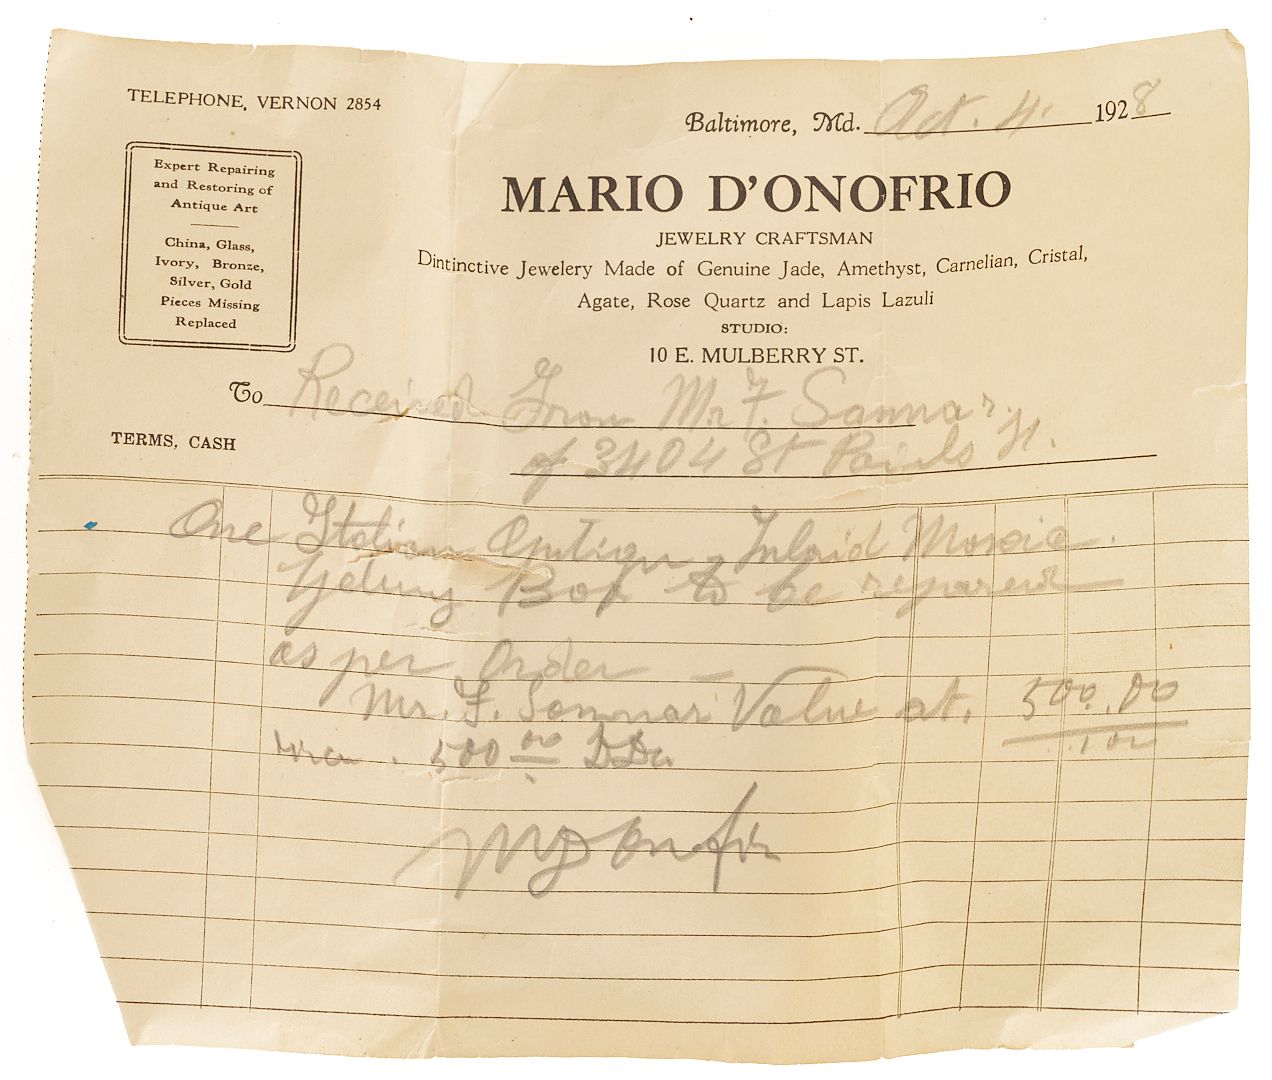 TELEPHONE, VERNON 2854
Baltimore, Md. Oct. 4. 1928
Expert Repairing
and Restoring of
Antique Art
China, Glass,
Ivory, Bronze,
Silver, Gold
Pieces Missing
Replaced
MARIO D'ONOFRIO
JEWELRY CRAFTSMAN
Dintinctive Jewelery Made of Genuine Jade, Amethyst, Carnelian, Cristal,
Agate, Rose Quartz and Lapis Lazuli
STUDIO:
10 E. MULBERRY ST.
To Received From Mr F. Sannar
of 3404 St Pauls St.
TERMS, CASH
One Italian Antique Inlaid
Box to be
as per Order —
Mr. F. Sannar Value at. 500.00
500 00